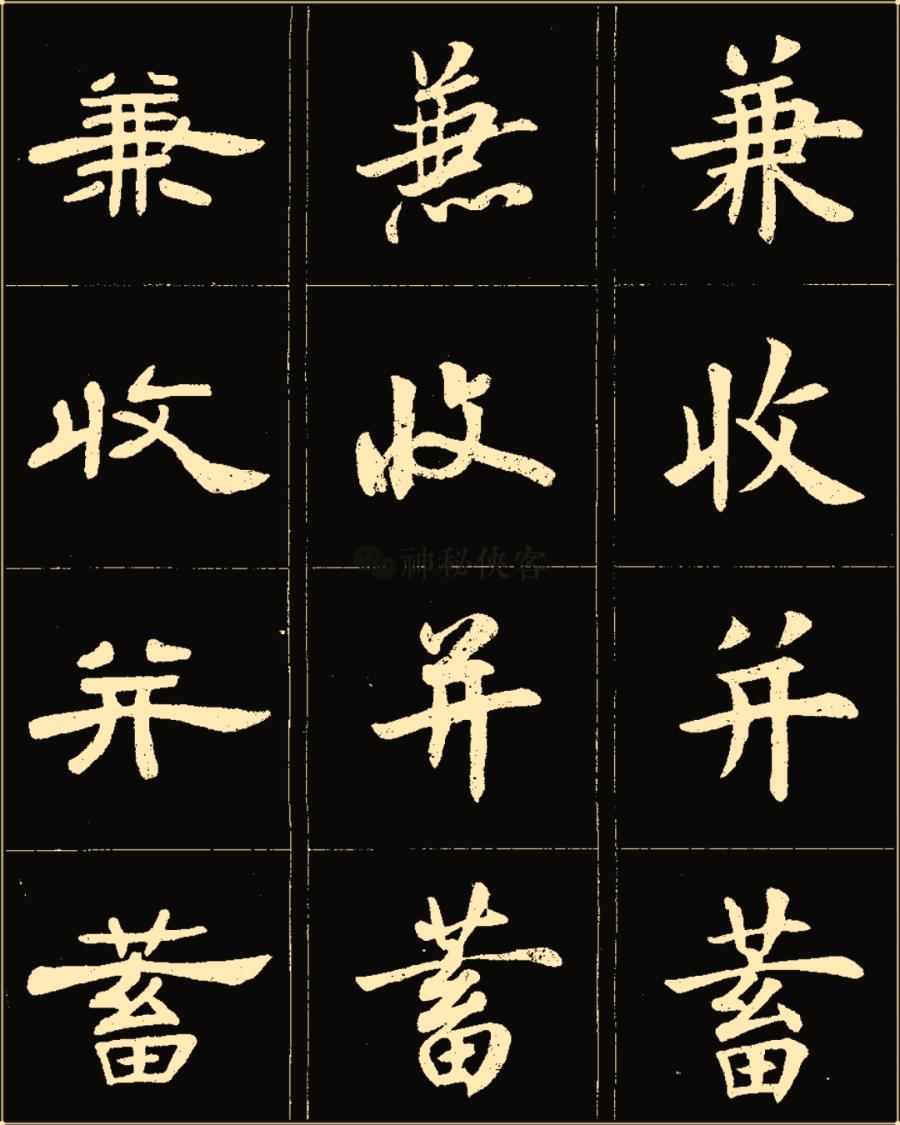 兼 兼 兼
收 收 收
并 并 并
蓄 蓄 蓄
神秘俠客